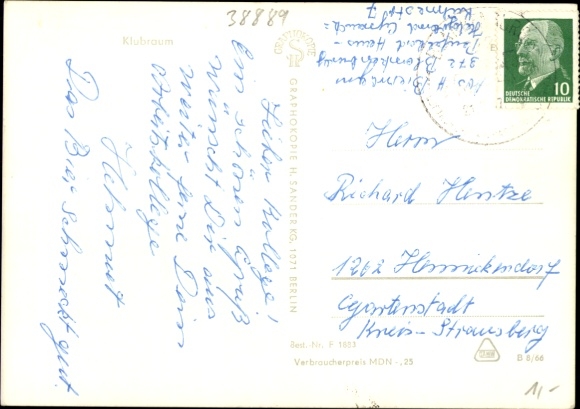 38889
Klubraum
Lieber Kollege!
Ein schönen Gruß
wünscht Dir aus
weiter Ferne Dein
Arbeitskollege
Helmut
Das Bier schmeckt gut.
GRAPHOKOPIE
GRAPHOKOPIE H. SANDER KG, 1071 BERLIN
Abs. H.
372 Blankenburg
10
DEUTSCHE
DEMOKRATISCHE REPUBLIK
Herrn
Richard Hentze
1262 Hennickendorf
Gartenstadt
Kreis-Strausberg
Best.-Nr. F 1653
Verbraucherpreis MDN -,25
B 8/66
1,-